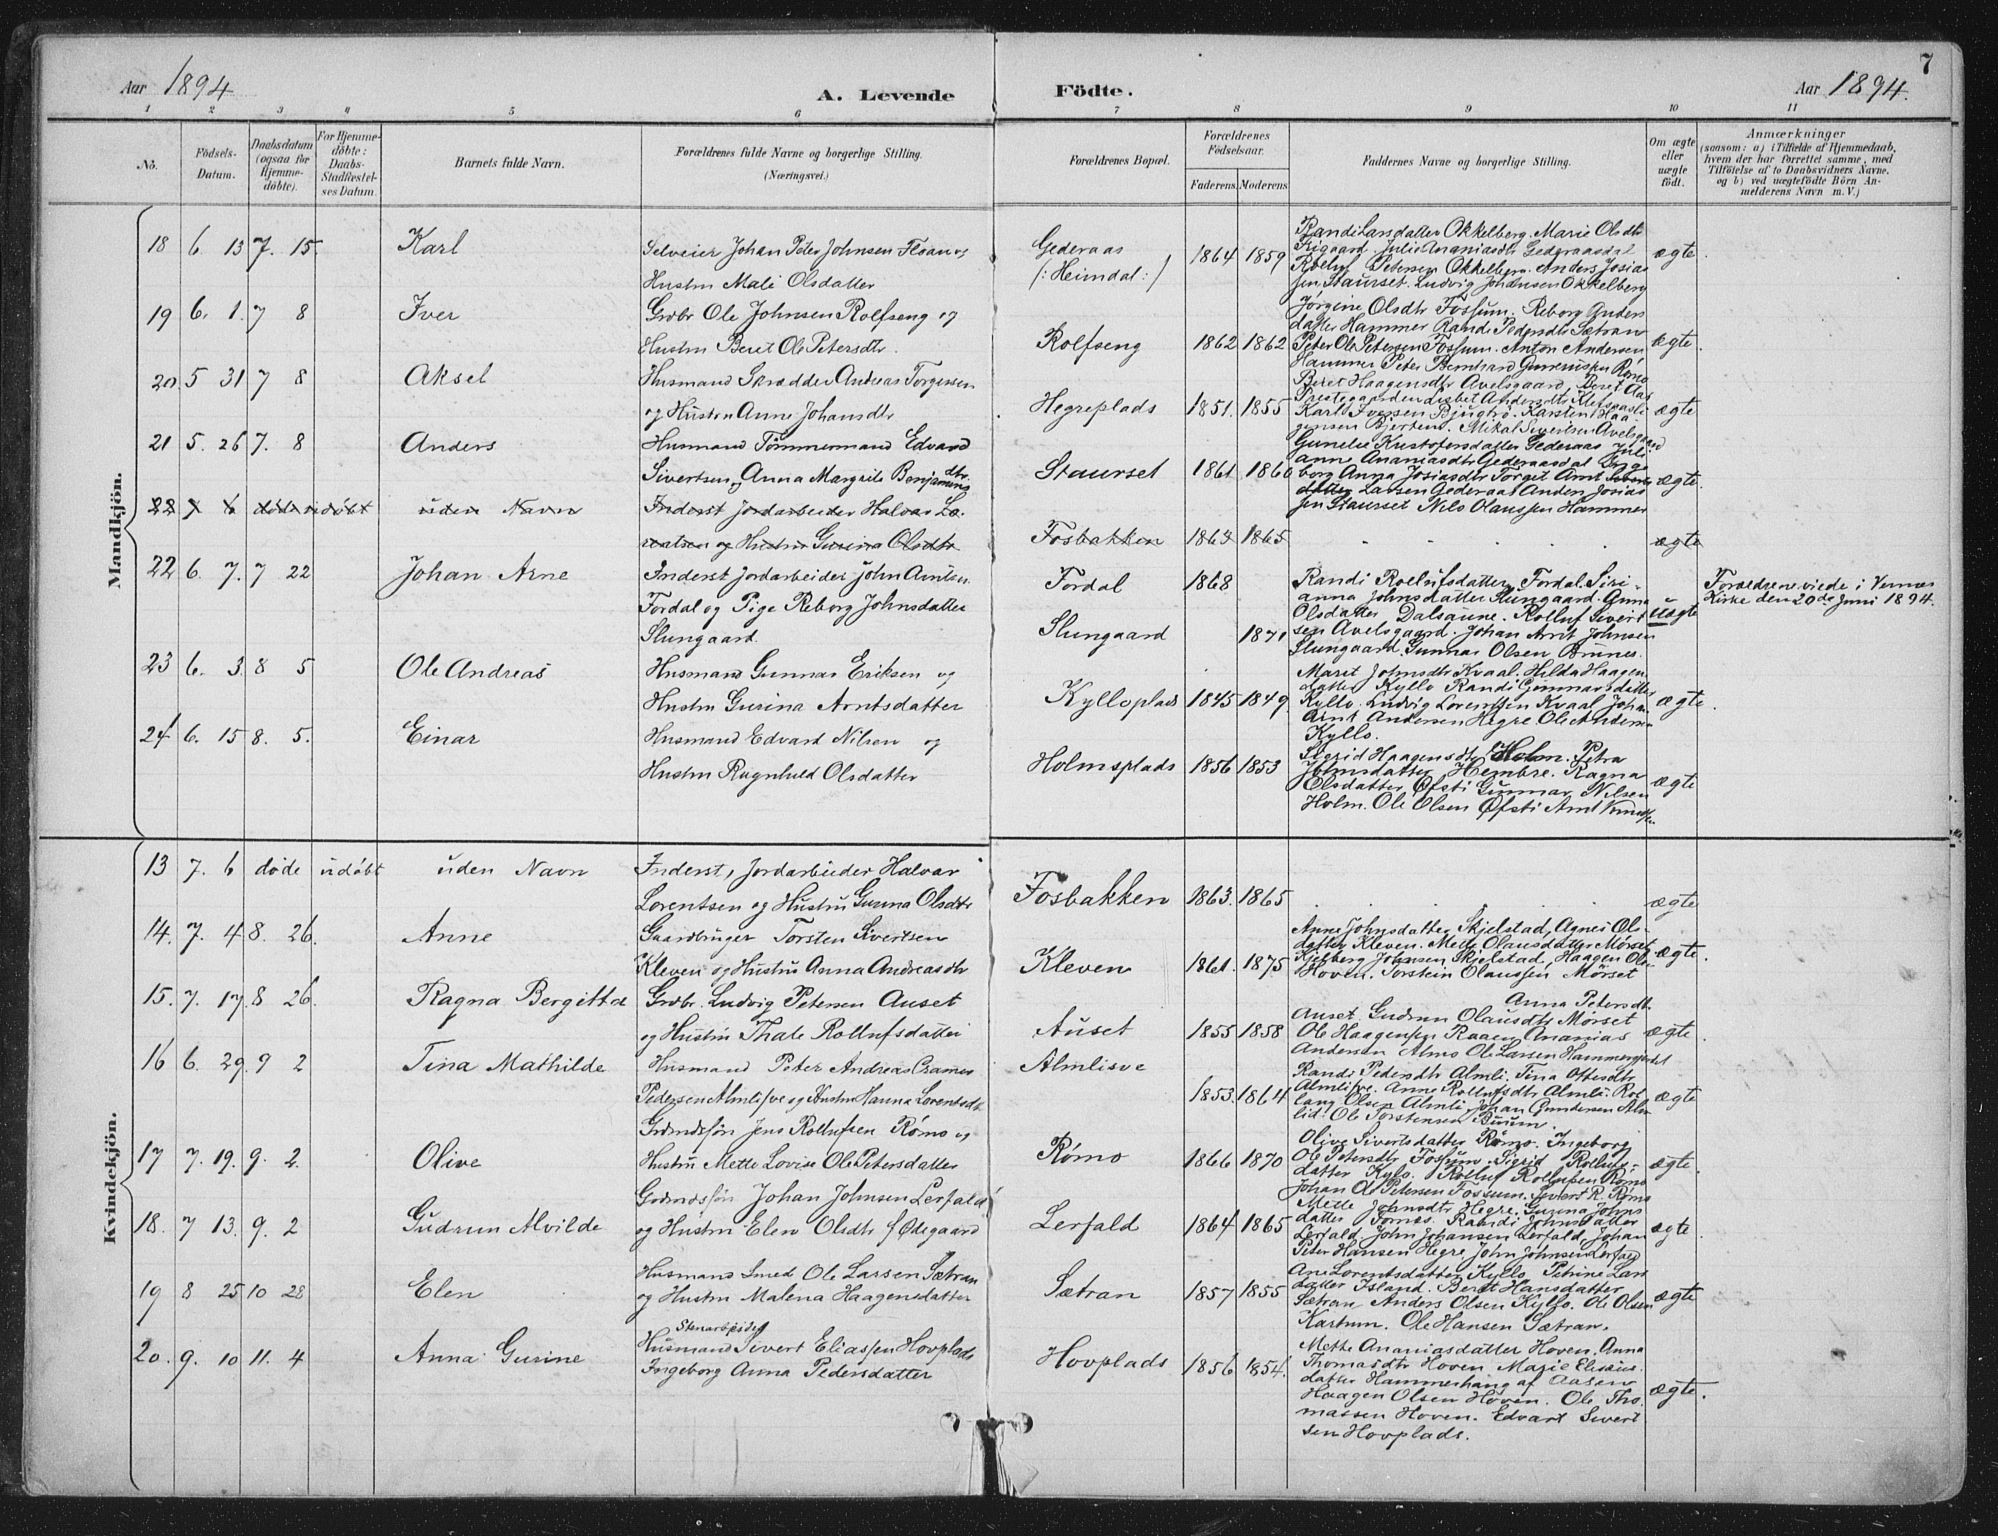 7
Aar 1894
A. Levende Födte.
Aar 1894.
1 2 3 4 5 6 7 8 9 10 11
No.
Födsels-Datum.
Daabsdatum (ogsaa for Hjemme-döbte).
For Hjemme-döbte: Daabs-Stadfæstelses Datum.
Barnets fulde Navn.
Forældrenes fulde Navne og borgerlige Stilling.
(Næringsvei.)
Forældrenes Bopæl.
Forældrenes Födselsaar.
Faderens. Moderens.
Faddernes Navne og borgerlige Stilling.
Om ægte eller uægte födt.
Anmærkninger
(saasom: a) i Tilfælde af Hjemmedaab,
hvem der har forrettet samme, med
Tilföielse af to Daabsvidners Navne,
og b) ved uægtefödte Börn An-
melderens Navn m. V.)
Mandkjön.
18 6. 13 7. 15. Karl
Selveier Johan Peter Johnsen Floan og
Hustru Mali Olsdatter
Gederaas
(: Heimdal :)
1864 1859
Randi Larsdatter Okkelberg. Marie Olsdtr
Julie Ananiasdtr Gederaasdal
Petersen Okkelberg. Anders Josia
sen, Staurset. Ludvig Johansen Okkelberg
ægte
19 6. 1. 7 8 Iver
Grdbr Ole Johnsen Rolfseng og
Hustru Beret Ole Petersdtr.
Rolfseng 1862 1862
Jørgine Olsdtr Fossum. Reborg Gunders
datter Hammer Randi Pedersdtr Sætran
Peter Ole Petersen Fossum. Anton Andersen
Hammer Peter Bernhard Rømo
ægte.
20. 5 31 7 8 Aksel
Husmand Skrædder Andreas Torgersen
og Hustru Anne Johansdtr
Hegreplads 1851. 1855
Beret Haagensdtr Avelsgaard, Beret Aas
Karl Iversen Karsten Haa
gensen Bjerken. Mikal Sivertsen Avelsgaard
ægte
21 5. 26 7. 8 Anders
Husmand Tömmermand Edvard
Sivertsen, Anna Margrete Benjaminsdtr.
Staurset 1861 1860
Gunelie Kristofersdatter Gederaas Juli
anne Ananiasdtr Gederaasdal Inge
borg Anna Josiasdtr Torget Arnt
Larsen Gederaas Anders Josias
sen Staurset Nils Olaussen Hammer
ægte.
22 7 6 døde udøbt uden Navn
Inderst Jordarbeider Halvar Lo-
rentsen og Hustru Gurina Olsdtr
Fosbakken 1863 1865 ægte
22 6. 7. 7 22 Johan Arne
Inderst Jordarbeider John Arntsen
Fordal og Pige Reborg Johnsdatter
Slungaard
Fordal 1868
Slungaard 1871
Randi Rollufsdatter Fordal. Siri-
anna Johnsdatter Slungaard. Guna
Olsdatter Dalsaune. Rolluf Sivert
sen Avelsgaard. Johan Arnt Johnsen
Slungaard. Gunnar Olsen Brunes.
uægte
Forældrene viede i Vernæs
Kirke den 20de Juni 1894.
23 6. 3. 8 5 Ole Andreas
Husmand Gunnar Eriksen og
Hustru Gurina Arntsdatter
Kylloplads 1845 1849
Marit Johnsdtr Kvaal. Hilda Haagen
datter Kyllo Randi Gunnarsdatter
Kyllo. Ludvig Lorentsen Kvaal Johan
Arnt Andersen Hegre Ole Andersen
Kyllo.
ægte.
24 6. 15 8. 5. Einar
Husmand Edvard Nilsen og
Hustru Ragnhild Olsdatter
Holmsplads 1856 1853
Sigrid Haagensdtr Holm. Petra
Johnsdatter Hembre. Ragna
Olsdatter Øfsti Gunnar Nilsen
Holm. Ole Olsen Øfsti Arnt
ægte
Kvindekjön.
13 7. 6 døde udøbt uden Navn
Inderst, Jordarbeider Halvar
Lorentsen og Hustru Gurina Olsdtr
Fosbakken 1863. 1865 ægte
14. 7. 4 8. 26. Anne
Gaardbruger Torsten Sivertsen
Kleven og Hustru Anna Andreasdtr
Kleven 1861. 1875
Anne Johnsdatter Skjelstad, Agnes Ols-
datter Kleven. Mette Olausdatter Mørset
Kjelberg Johnsen Skjelstad, Haagen Ols
Hoven. Torstein Olaussen Mørset
ægte.
15. 7. 17. 8 26. Ragna Bergitta
Grdbr. Ludvig Petersen Auset
og Hustru Thale Rollufsdatter
Auset 1855 1858
Anna Petersdt.
Auset. Gudrun Olausdtr Mørset
Ole Haagensen Raaen Ananias
Andersen Almo Ole Larsen
ægte
16 6. 29. 9 2 Tina Mathilde
Husmand Peter Andreas Cramer
Pedersen Almlisve og Hustru Hanna Lorentsdt.
Almlisve 1853. 1864
Randi Pedersdtr Almli, Tina Ottesdtr
Almlisve. Anne Rollufsdtr Almli. Rol
lang Olsen Almli, Johan Gundersen Alm
lid. Ole Torstensen Buum.
ægte
17 7. 19. 9. 2. Olive
Grdmdssøn Jens Rollufsen Rømo og
Hustru Mette Lovise Ole Petersdatter
Rømo 1866 1870
Olive Sivertsdatter Rømo. Ingeborg
Ole Petersdtr Fossum. Sigrid Rollufs-
datter Kylo. Rolluf Rollufsen Rømo
Johan Ole Petersen Fossum. Sivert R. Rømo
ægte.
18. 7 13. 9. 2 Gudrun Alvilde
Grdmdssøn Johan Johnsen Lerfald
og Hustru Elen Olsdtr f Ødegaard
Lerfald 1864 1865
Mette Johnsdtr Hegre. Gurina Johns
datter Fornes. Randi Johnsdatter
Lerfald. John Johansen Lerfald, Johan
Peter Hansen Hegre, John Johnsen Lerfald
ægte.
19 8 25 10 28 Elen
Husmand Smed Ole Larsen Sætran
og Hustru Malena Haagensdatter
Sætran 1857 1855
Ane Lorentsdatter Kyllo Petrine Lars
datter Island. Beret Hansdatter
Sætran Anders Olsen Kyllo. Ole Olsen
Kartum. Ole Hansen Sætran.
ægte
20. 9. 10 11. 4 Anna Gurine
Stenarbeider
Husmand Sivert Eliassen Hovplads
Ingeborg Anna Pedersdatter
Hovplads 1856 1854.
Mette Ananiasdatter Hoven. Anna
Thomasdtr Hoven Marie Elisæus
datter Hammerhaug af Aasen
Haagen Olsen Hoven. Ole Tho
massen Hoven. Edvart Sivert
sen Hovplads.
ægte.